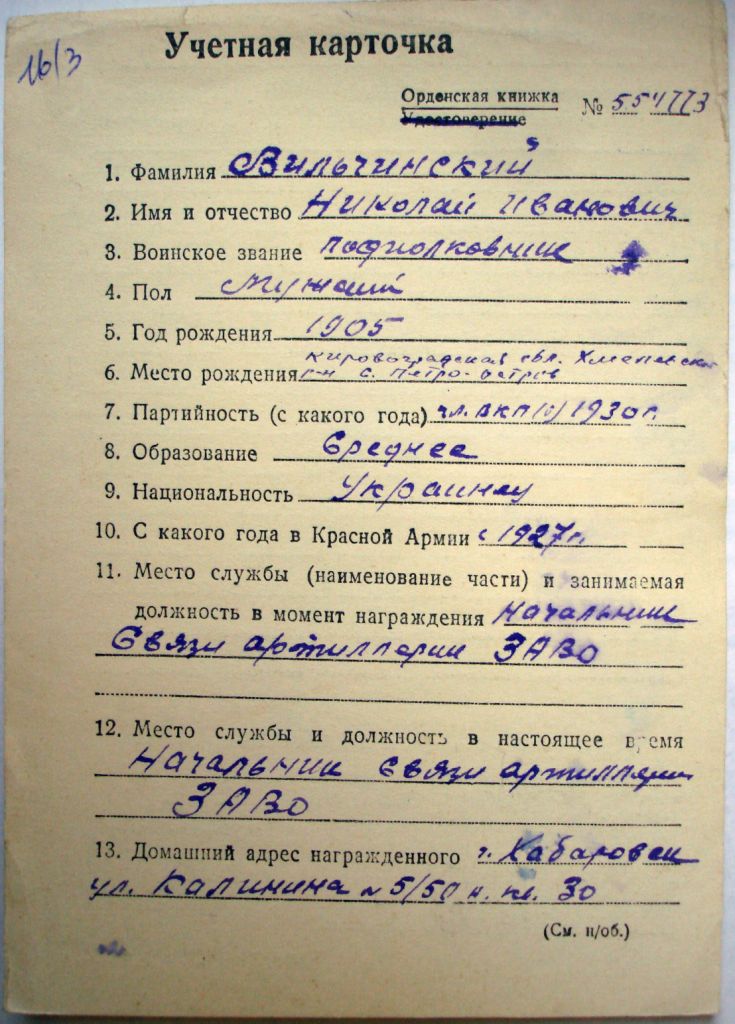 16/3
Учетная карточка
Орденская книжка
Удостоверение
№ 554773
1. Фамилия Вильчинский
2. Имя и отчество Николай Иванович
3. Воинское звание подполковник
4. Пол Мужской
5. Год рождения 1905
Кировоградская обл.
6. Место рождения р-н с. Петро-остров
7. Партийность (с какого года) чл. ВКП(б) 1930 г.
8. Образование Среднее
9. Национальность Украинец
10. С какого года в Красной Армии с 1927 г.
11. Место службы (наименование части) и занимаемая
должность в момент награждения Начальник
Связи артиллерии ЗАВО
12. Место службы и должность в настоящее время
Начальник связи артиллерии
ЗАВО
13. Домашний адрес награжденного г. Хабаровск
ул. Калинина № 5/50 кв. 30
(См. н/об.)